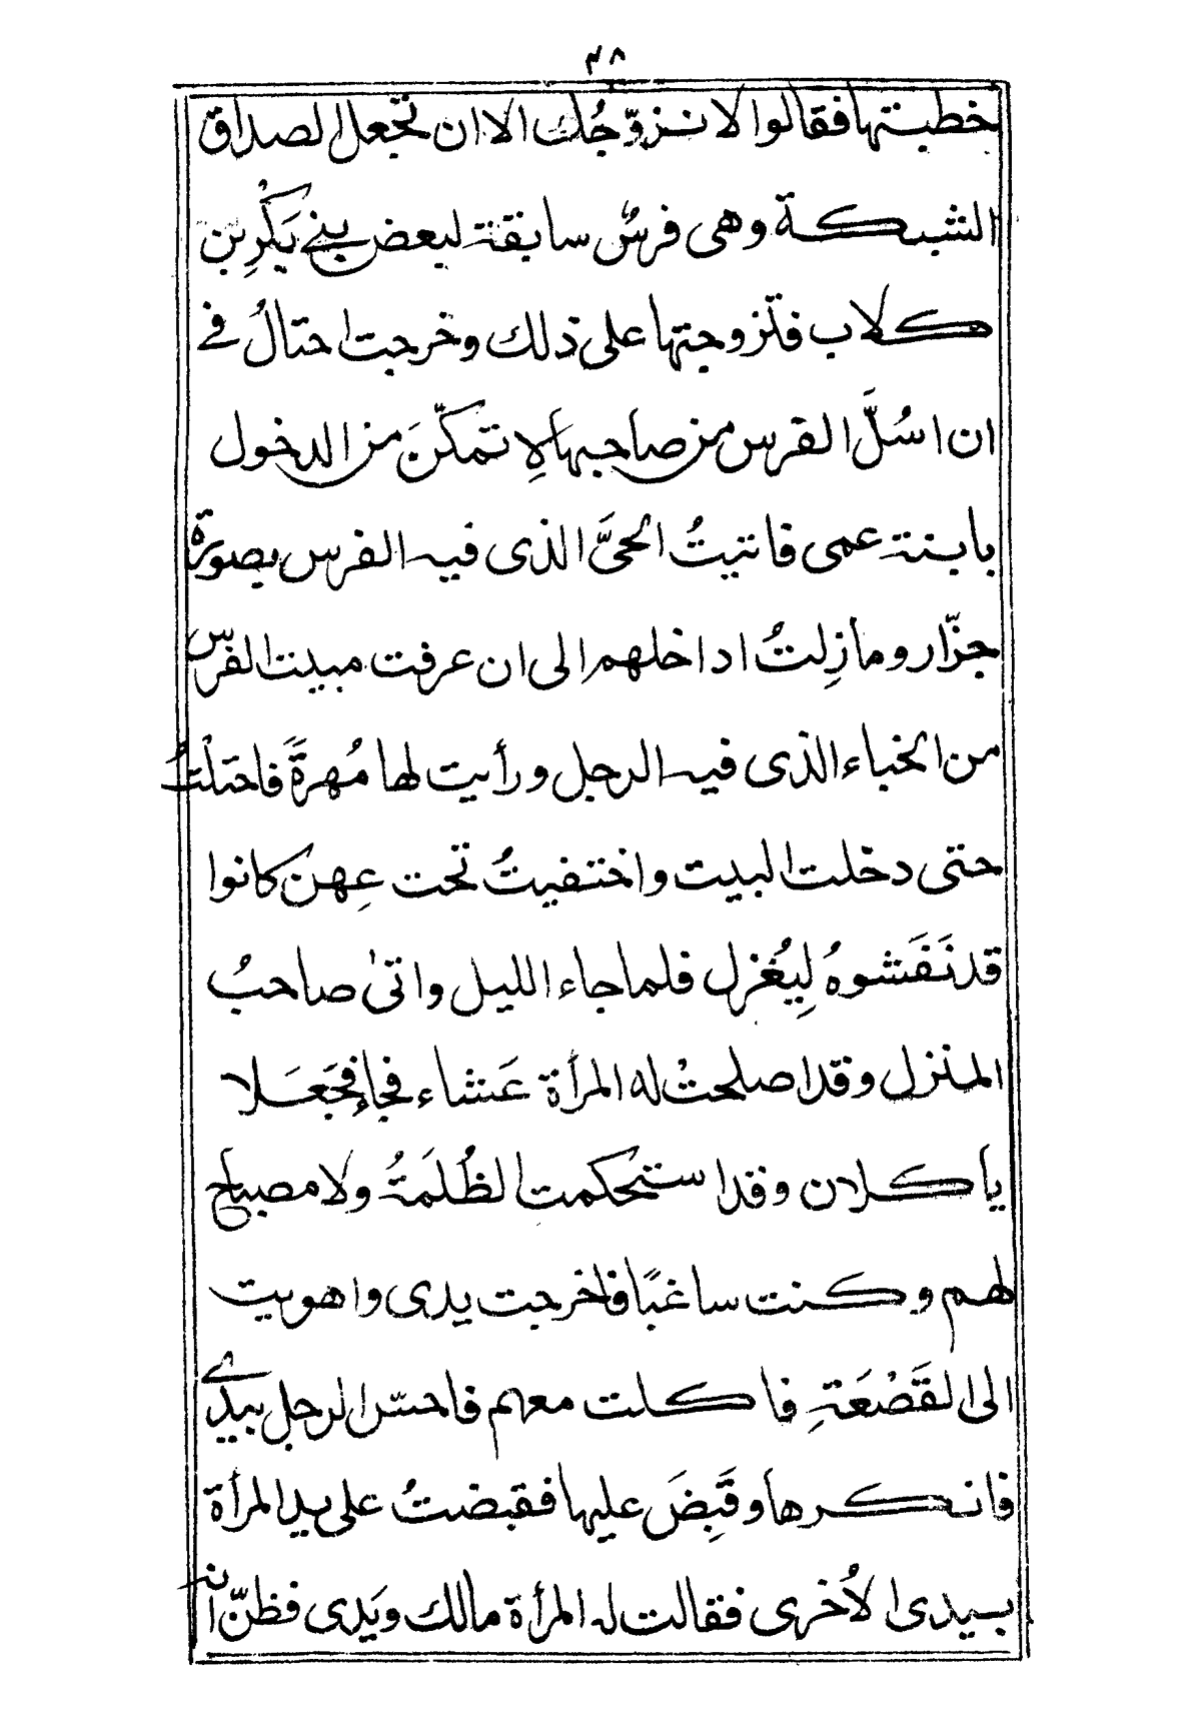 ٣٨
خطبتها فقالوا لا نزوّجُك الا ان تجعل الصداق
الشبكة وهى فرسٌ سابقة لبعض بنى بَكْرِبن
كلاب فتزوجتها على ذلك وخرجت احتالُ فى
ان اسُلَّ الفرس من صاحبها لِاتمكّنَ من الدخول
بابنة عمى فاتيتُ الحىَّ الذى فيه الفرس بصورة
جزّار وما زِلتُ اداخلهم الى ان عرفت مبيت الفرس
من الخباء الذى فيه الرجل ورأيت لها مُهرةً فاحتلْتُ
حتى دخلت البيت واختفيتُ تحت عِهن كانوا
قد نَفَشوهُ لِيُغزل فلما جاء الليل واتىٰ صاحبُ
المنزل وقد اصلحتْ له المرأة عَشاء فجاء فجَعَلا
ياكلان وقد استحكمت الظُلَمَةُ ولا مصباح
لهم وكنت ساغبًا فاخرجت يدى واهويت
الى القَصْعَةِ فاكلت معهم فاحسّ الرجل بيدى
فانكرها وقَبِضَ عليها فقبضتُ على يد المرأة
بيدى الاُخرى فقالت له المرأة مالك ويَدى فظنّ انه